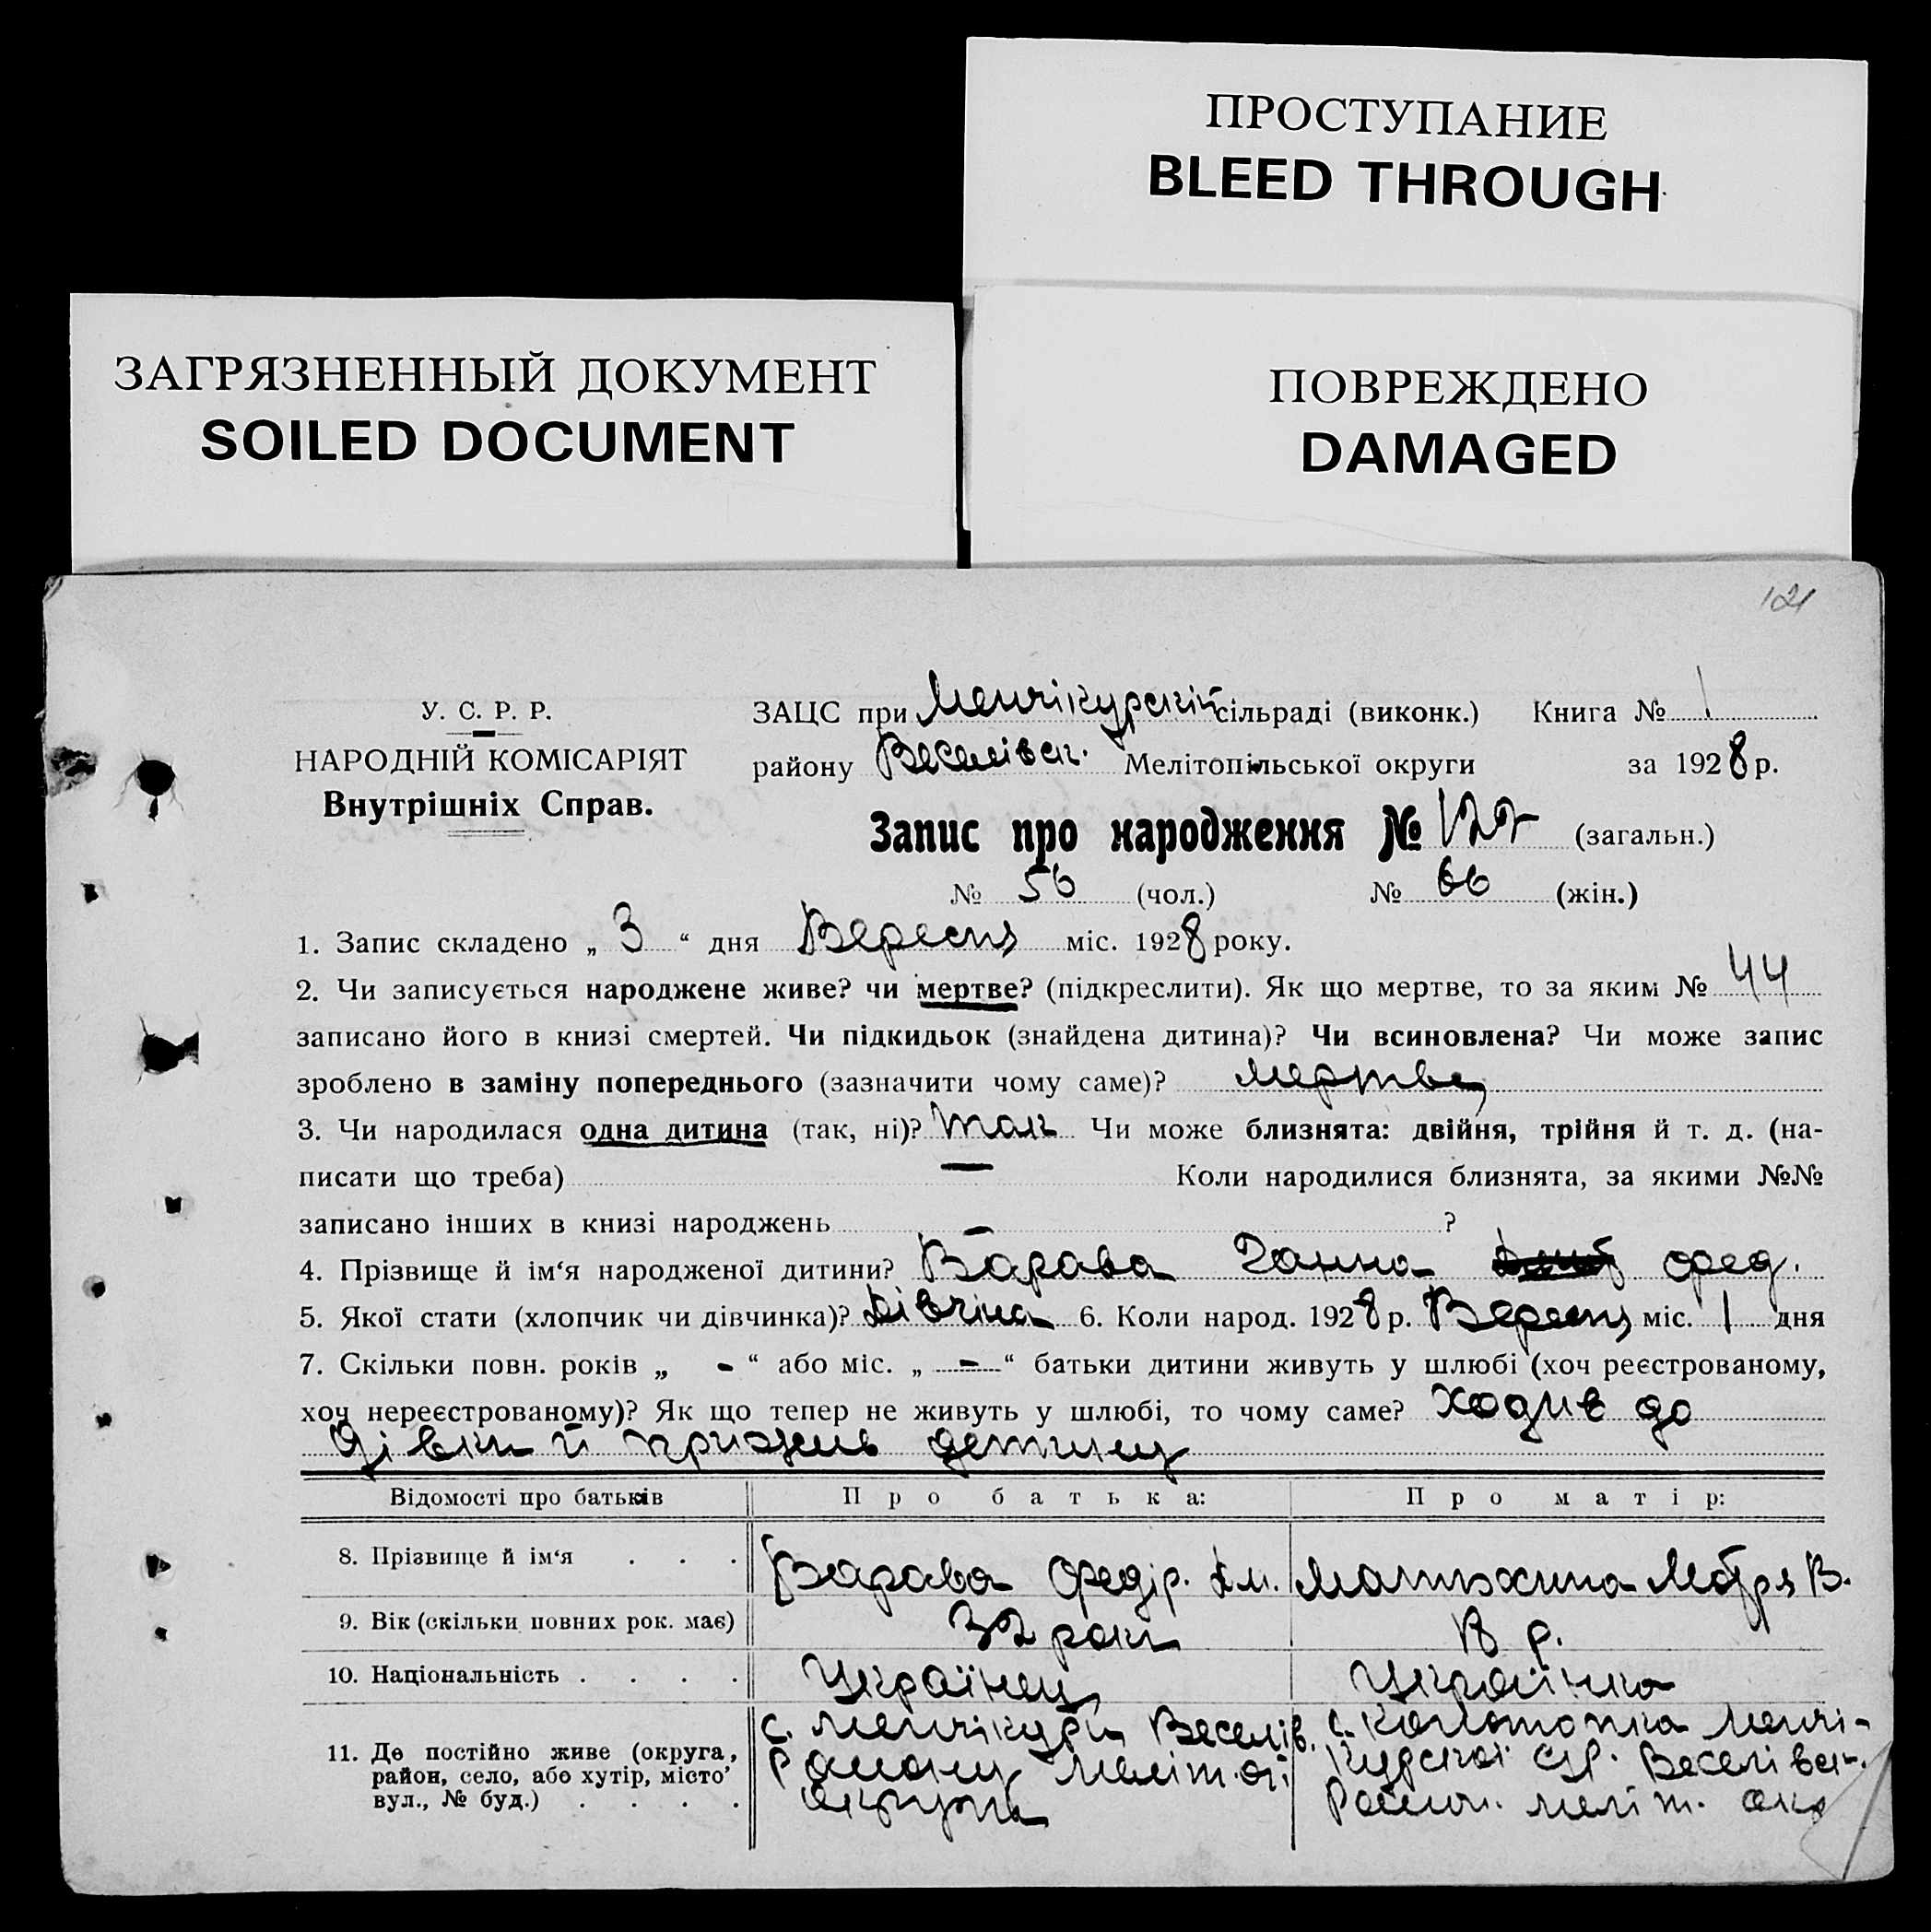 ПРОСТУПАНИЕ
BLEED THROUGH
ЗАГРЯЗНЕННЫЙ ДОКУМЕНТ
SOILED DOCUMENT
ПОВРЕЖДЕНО
DAMAGED
121
У. С. Р. Р.
НАРОДНІЙ КОМІСАРІЯТ
Внутрішніх Справ.
ЗАЦС при Менчікурській сільраді (виконк.) Книга № 1
району Веселівск. Мелітопільської округи за 1928 р.
Запис про народження № 122 (загальн.)
№ 56 (чол.) № 66 (жін.)
1. Запис складено „ 3 “ дня Вересня міс. 1928 року.
2. Чи записується народжене живе? чи мертве? (підкреслити). Як що мертве, то за яким № 44
записано його в книзі смертей. Чи підкидьок (знайдена дитина)? Чи всиновлена? Чи може запис
зроблено в заміну попереднього (зазначити чому саме)? мертве
3. Чи народилася одна дитина (так, ні)? так Чи може близнята: двійня, трійня й т. д. (на-
писати що треба) — Коли народилися близнята, за якими №№
записано інших в книзі народжень — ?
4. Прізвище й ім‘я народженої дитини? Варава Ганна Фед.
5. Якої стати (хлопчик чи дівчинка)? Дівчіна 6. Коли народ. 1928 р. Вересня міс. 1 дня
7. Скільки повн. років „ - “ або міс. „ - “ батьки дитини живуть у шлюбі (хоч реєстрованому,
хоч нереєстрованому)? Як що тепер не живуть у шлюбі, то чому саме? ходив до
дівки й прижив детину
Відомості про батьків Про батька: Про матір:
8. Прізвище й ім‘я . . . Варава Федір. Дм. Матюхина Мотря В.
9. Вік (скільки повних рок. має) 32 роки р.
10. Національність . . . . Українец Українка
11. Де постійно живе (округа, район, село, або хутір, місто’ вул., № буд.) . . . .
с. Менчікури Веселів.
Району Меліт.ої
округи
с. Менчі-
курскої с/р. Веселівск.
Район. меліт. окр